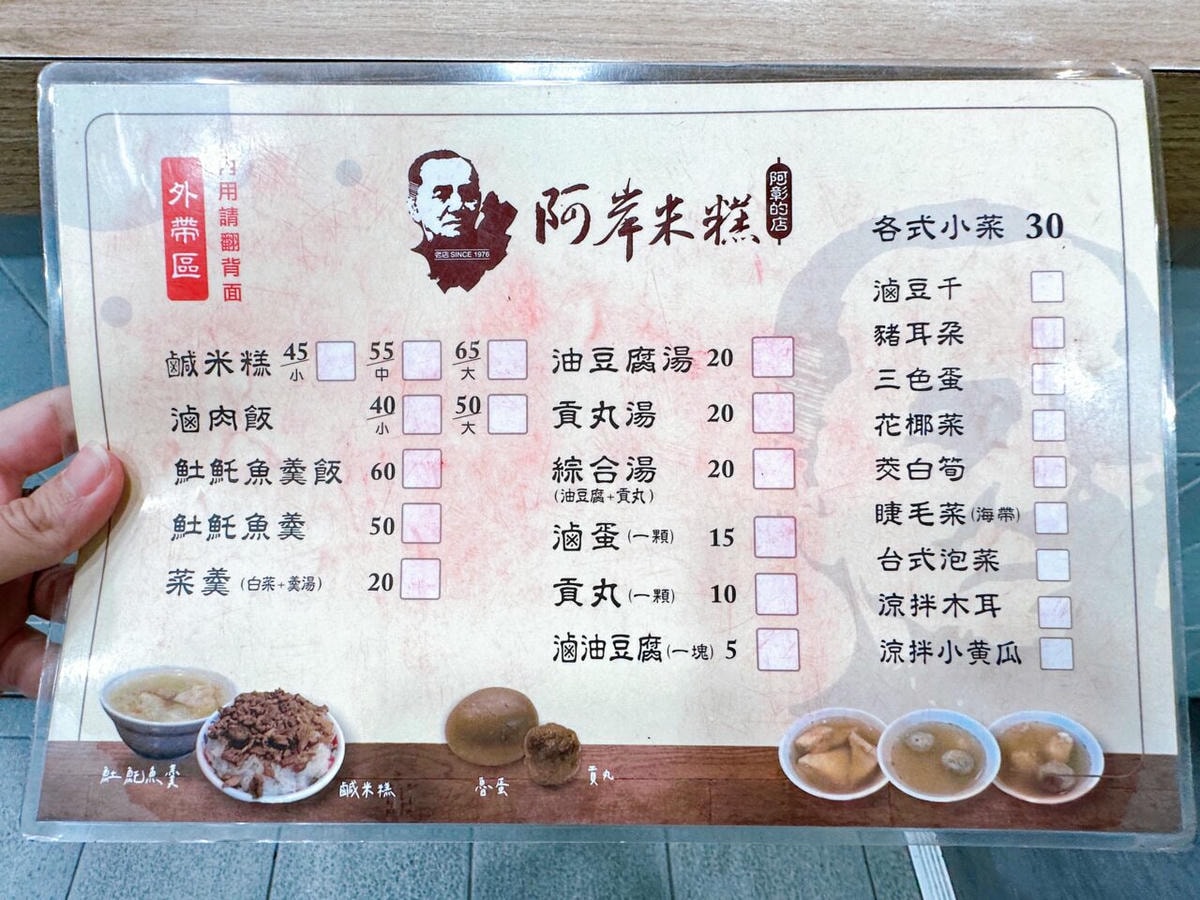 外帶區
內用請翻背面
名店 SINCE 1976
阿岸米糕
阿彰的店
鹹米糕 45 小 55 中 65 大
滷肉飯 40 小 50 大
𩵚魠魚羹飯 60
𩵚魠魚羹 50
菜羹 (白菜+羹湯) 20
油豆腐湯 20
貢丸湯 20
綜合湯 20
(油豆腐+貢丸)
滷蛋 (一顆) 15
貢丸 (一顆) 10
滷油豆腐 (一塊) 5
各式小菜 30
滷豆干
豬耳朶
三色蛋
花椰菜
茭白筍
睫毛菜 (海帶)
台式泡菜
涼拌木耳
涼拌小黃瓜
𩵚魠魚羹
鹹米糕
魯蛋
貢丸